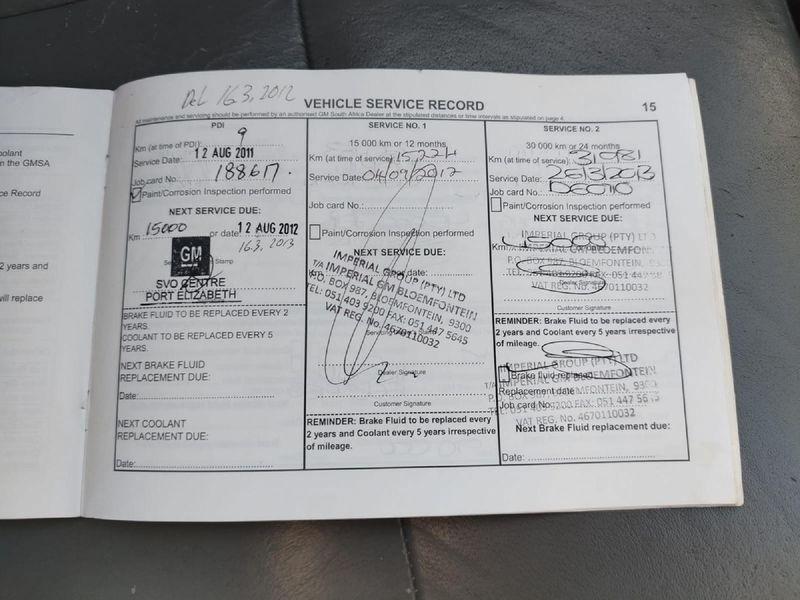 Del 16.3.2012
VEHICLE SERVICE RECORD
15
All maintenance and servicing should be performed by an authorised GM South Africa Dealer at the stipulated distances or time intervals as stipulated on page 4.
oolant
n the GMSA
ce Record
2 years and
will replace
PDI
9
Km (at time of PDI):
Service Date: 12 AUG 2011
Job card No.: 188617.
Paint/Corrosion Inspection performed
NEXT SERVICE DUE:
Km 15000 or date: 12 AUG 2012
16.3.2013
GM
Stamp
SVO CENTRE
PORT ELIZABETH
BRAKE FLUID TO BE REPLACED EVERY 2
YEARS.
COOLANT TO BE REPLACED EVERY 5
YEARS.
NEXT BRAKE FLUID
REPLACEMENT DUE:
Date:
NEXT COOLANT
REPLACEMENT DUE:
Date:
SERVICE NO. 1
15 000 km or 12 months
Km (at time of service): 15224
Service Date: 04/09/2012
Job card No.:
Paint/Corrosion Inspection performed
NEXT SERVICE DUE:
or date:
IMPERIAL GROUP (PTY) LTD
T/A IMPERIAL GM BLOEMFONTEIN
P.O. BOX 987, BLOEMFONTEIN, 9300
TEL: 051 403 9200 FAX: 051 447 5645
VAT REG. No. 4670110032
Dealer Signature
Customer Signature
REMINDER: Brake Fluid to be replaced every
2 years and Coolant every 5 years irrespective
of mileage.
SERVICE NO. 2
30 000 km or 24 months
Km (at time of service): 31081
Service Date: 26/3/2013
Job card No.:
Paint/Corrosion Inspection performed
NEXT SERVICE DUE:
Km
IMPERIAL GROUP (PTY) LTD
IMPERIAL GM BLOEMFONTEIN
P.O. BOX 987, BLOEMFONTEIN,
TEL: 051 403 9200 FAX: 051 447
VAT REG. No. 4670110032
Dealer Signature
Customer Signature
REMINDER: Brake Fluid to be replaced every
2 years and Coolant every 5 years irrespective
of mileage.
IMPERIAL GROUP (PTY) LTD
T/A IMPERIAL GM BLOEMFONTEIN
Brake fluid replaced
P.O. BOX 987, BLOEMFONTEIN, 9300
Replacement date
TEL: 051 403 9200 FAX: 051 447 5645
Job card No.:
VAT REG. No. 4670110032
Next Brake Fluid replacement due:
Date: